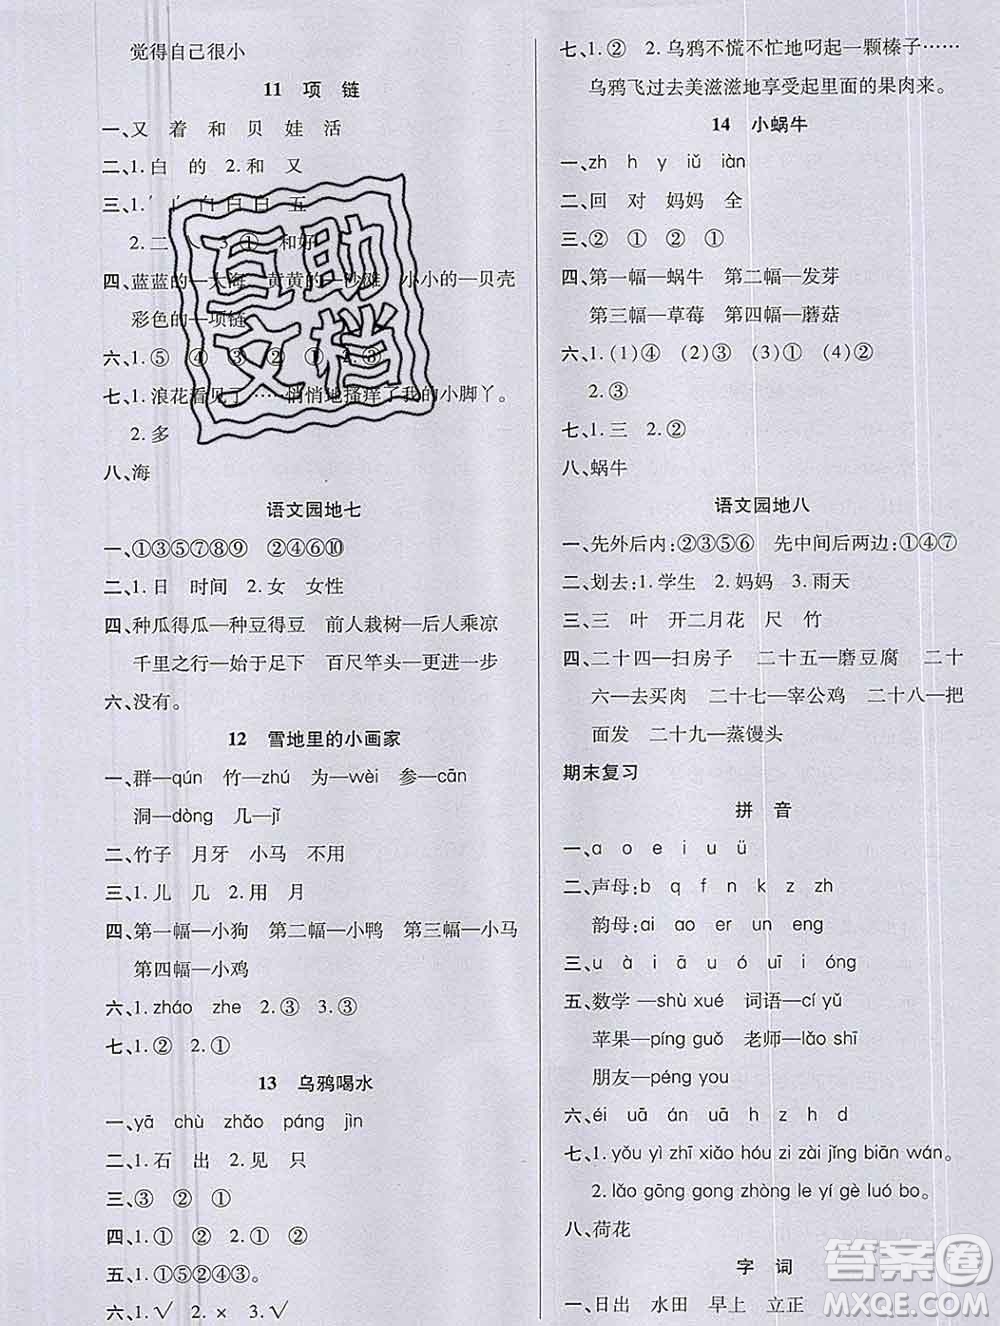 觉得自己很小
11 项 链
一、又 着 和 贝 娃 活
二、1.白 的 2.和 又
三、1.′ 白 白 五
2.二 3.① 和好
四、蓝蓝的—大海 黄黄的—沙滩 小小的—贝壳
彩色的—项链
六、1.⑤ ④ ③ ② ① 2.③
七、1.浪花看见了……悄悄地搔痒了我的小脚丫。
2.多
八、海
语文园地七
一、①③⑤⑦⑧⑨ ②④⑥⑩
二、1.日 时间 2.女 女性
四、种瓜得瓜—种豆得豆 前人栽树—后人乘凉
千里之行—始于足下 百尺竿头—更进一步
六、没有。
12 雪地里的小画家
一、群—qún 竹—zhú 为—wèi 参—cān
洞—dòng 几—jǐ
二、竹子 月牙 小马 不用
三、1.儿 几 2.用 月
四、第一幅—小狗 第二幅—小鸭 第三幅—小马
第四幅—小鸡
六、1.zháo zhe 2.③ ③
七、1.② 2.①
13 乌鸦喝水
一、yā chù zhǎo páng jìn
二、1.石 出 2.见 只
三、③ ② ①
四、1.① ② 2.① ②
五、1.①⑤②④③。
六、1.√ 2.× 3.√
七、1.② 2.乌鸦不慌不忙地叼起一颗榛子……
乌鸦飞过去美滋滋地享受起里面的果肉来。
14 小蜗牛
一、zh h y iǔ iàn
二、回 对 妈妈 全
三、② ① ② ①
四、第一幅—蜗牛 第二幅—发芽
第三幅—草莓 第四幅—蘑菇
六、1.(1)④ (2)③ (3)① (4)②
2.③
七、1.三 2.②
八、蜗牛
语文园地八
一、先外后内:②③⑤⑥ 先中间后两边:①④⑦
二、划去:1.学生 2.妈妈 3.雨天
三、三 叶 开二月花 尺 竹
四、二十四—扫房子 二十五—磨豆腐 二十
六—去买肉 二十七—宰公鸡 二十八—把
面发 二十九—蒸馒头
期末复习
拼 音
一、a o e i u ü
二、声母:b q f n k z zh
韵母:ai ao er un eng
三、u à i ā u à uō uī ióng
五、数学—shù xué 词语—cí yǔ
苹果—píng guǒ 老师—lǎo shī
朋友—péng you
六、éi uā án uā zh z h d
七、1.yǒu yì zhī xiǎo hóu zi zài jǐng biān wán。
2.lǎo gōng gong zhòng le yí gè luó bo。
八、荷花
字 词
一、日出 水田 早上 立正
互助
文档
答案圈
MXQE.COM